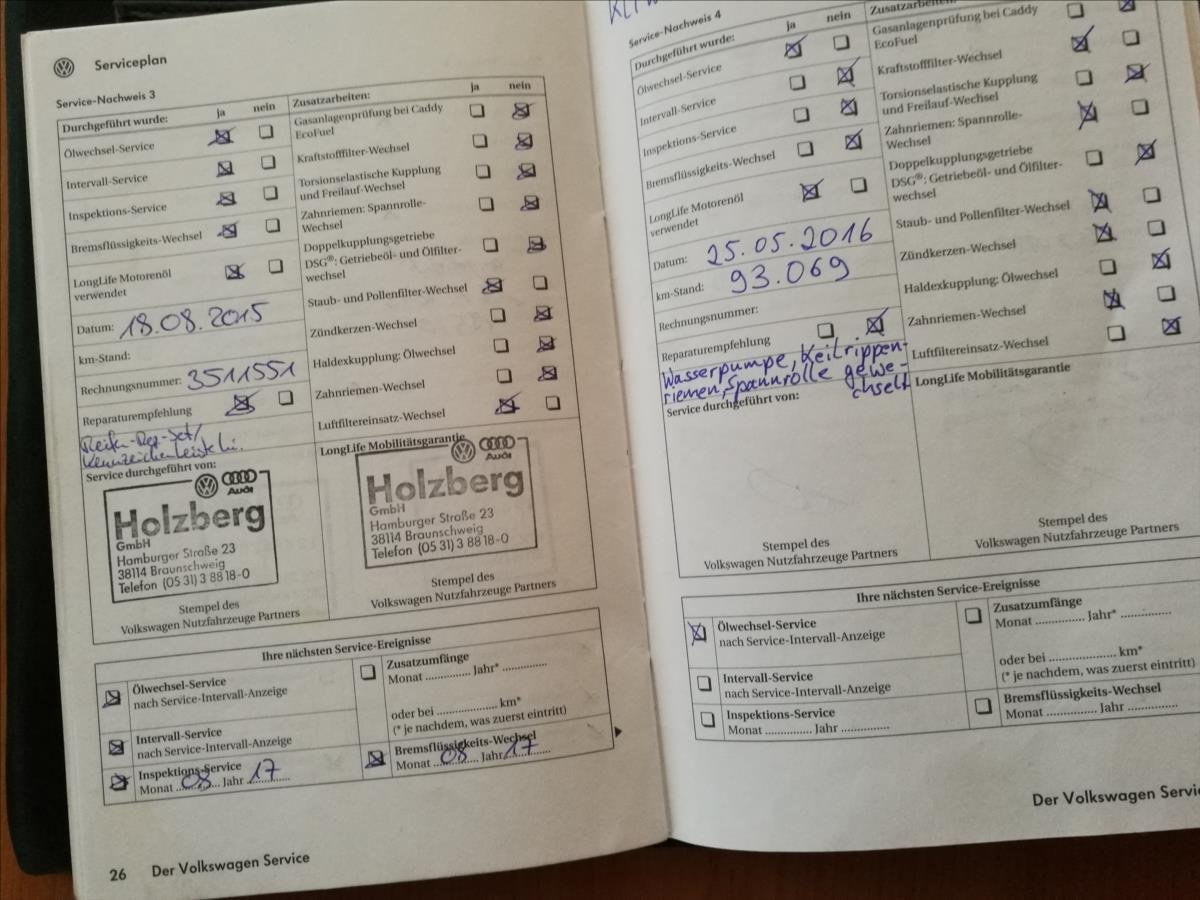 Serviceplan
Service-Nachweis 3
Durchgeführt wurde: ja nein
Ölwechsel-Service
Intervall-Service
Inspektions-Service
Bremsflüssigkeits-Wechsel
LongLife Motorenöl
verwendet
Datum: 18.08.2015
km-Stand:
Rechnungsnummer: 3511551
Reparaturempfehlung
Kennzeichenleiste
Service durchgeführt von:
Audi
Holzberg
GmbH
Hamburger Straße 23
38114 Braunschweig
Telefon (05 31) 3 88 18-0
Stempel des
Volkswagen Nutzfahrzeuge Partners
Zusatzarbeiten: ja nein
Gasanlagenprüfung bei Caddy
EcoFuel
Kraftstofffilter-Wechsel
Torsionselastische Kupplung
und Freilauf-Wechsel
Zahnriemen: Spannrolle-
Wechsel
Doppelkupplungsgetriebe
DSG®: Getriebeöl- und Ölfilter-
wechsel
Staub- und Pollenfilter-Wechsel
Zündkerzen-Wechsel
Haldexkupplung: Ölwechsel
Zahnriemen-Wechsel
Luftfiltereinsatz-Wechsel
LongLife Mobilitätsgarantie
Audi
Holzberg
GmbH
Hamburger Straße 23
38114 Braunschweig
Telefon (05 31) 3 88 18-0
Stempel des
Volkswagen Nutzfahrzeuge Partners
Ihre nächsten Service-Ereignisse
Ölwechsel-Service
nach Service-Intervall-Anzeige
Intervall-Service
nach Service-Intervall-Anzeige
Inspektions-Service
Monat 08 Jahr 17
Zusatzumfänge
Monat .............. Jahr* ..............
oder bei .................... km*
(* je nachdem, was zuerst eintritt)
Bremsflüssigkeits-Wechsel
Monat 08 Jahr 17
26 Der Volkswagen Service
Service-Nachweis 4
Durchgeführt wurde: ja nein
Ölwechsel-Service
Intervall-Service
Inspektions-Service
Bremsflüssigkeits-Wechsel
LongLife Motorenöl
verwendet
Datum: 25.05.2016
km-Stand: 93.069
Rechnungsnummer:
Reparaturempfehlung
Wasserpumpe, Keilrippen-
riemen, Spannrolle gewe-
chselt
Service durchgeführt von:
Stempel des
Volkswagen Nutzfahrzeuge Partners
Zusatzarbeiten:
Gasanlagenprüfung bei Caddy
EcoFuel
Kraftstofffilter-Wechsel
Torsionselastische Kupplung
und Freilauf-Wechsel
Zahnriemen: Spannrolle-
Wechsel
Doppelkupplungsgetriebe
DSG®: Getriebeöl- und Ölfilter-
wechsel
Staub- und Pollenfilter-Wechsel
Zündkerzen-Wechsel
Haldexkupplung: Ölwechsel
Zahnriemen-Wechsel
Luftfiltereinsatz-Wechsel
LongLife Mobilitätsgarantie
Stempel des
Volkswagen Nutzfahrzeuge Partners
Ihre nächsten Service-Ereignisse
Ölwechsel-Service
nach Service-Intervall-Anzeige
Intervall-Service
nach Service-Intervall-Anzeige
Inspektions-Service
Monat .............. Jahr ..............
Zusatzumfänge
Monat .............. Jahr* ..............
oder bei .................... km*
(* je nachdem, was zuerst eintritt)
Bremsflüssigkeits-Wechsel
Monat .............. Jahr ..............
Der Volkswagen Servi